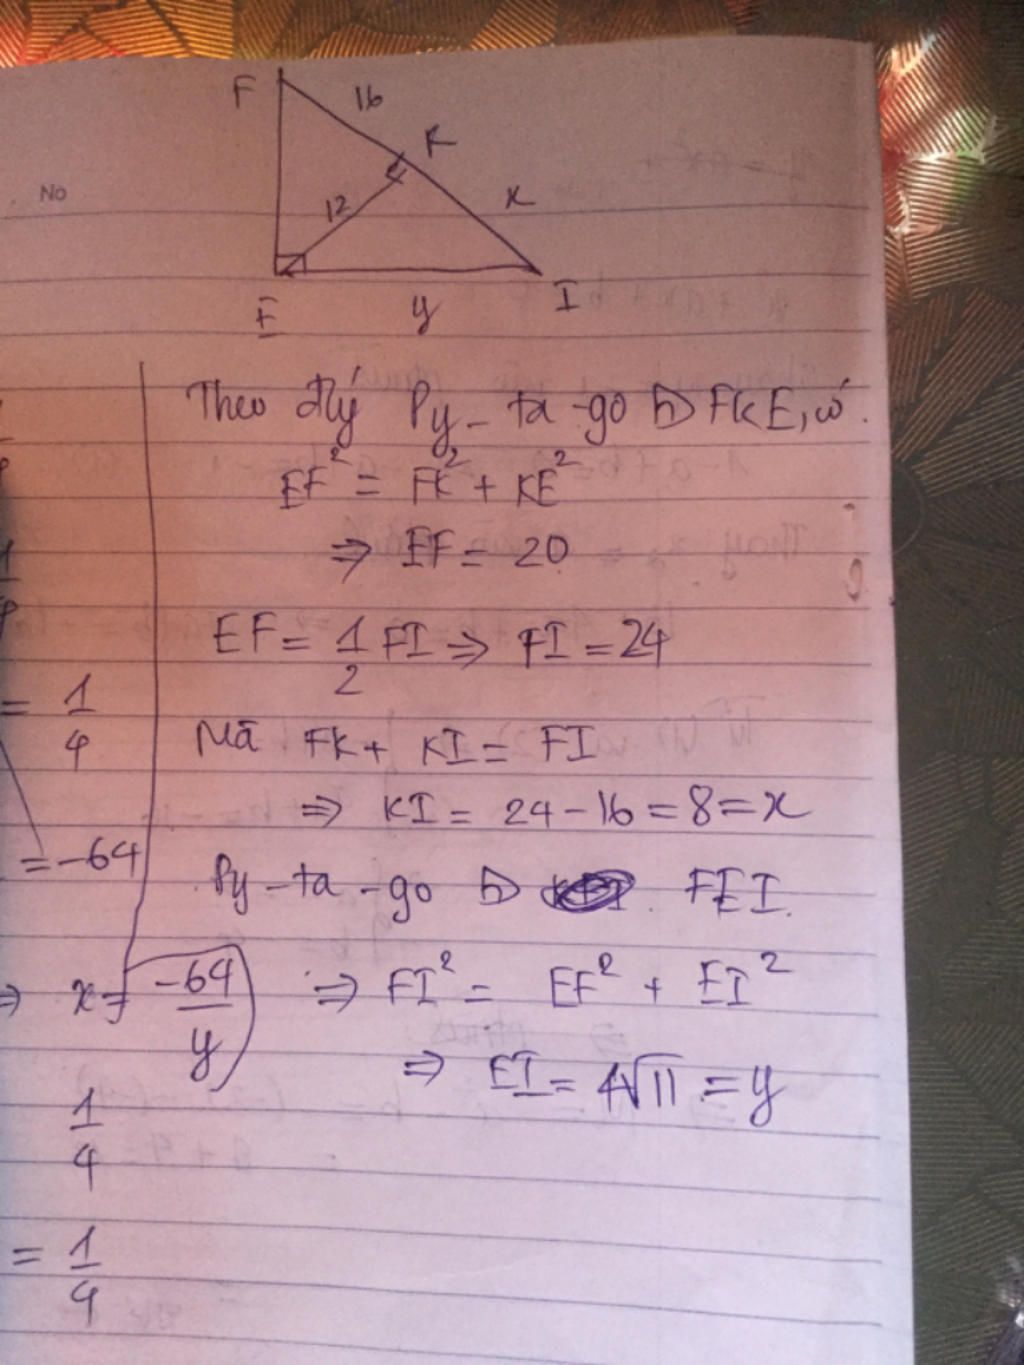 F
16
K
No
12
x
E
y
I
Theo đlý Py-ta-go ▷ FKE, có
EF² = FK² + KE²
⇒ EF = 20
EF = 1/2 FI ⇒ FI = 24
Mà FK + KI = FI
⇒ KI = 24 - 16 = 8 = x
Py-ta-go ▷ FEI.
⇒ FI² = EF² + EI²
⇒ EI = 4√11 = y
= 1/4
= -64
⇒ x = -64/y
1/4
= 1/4